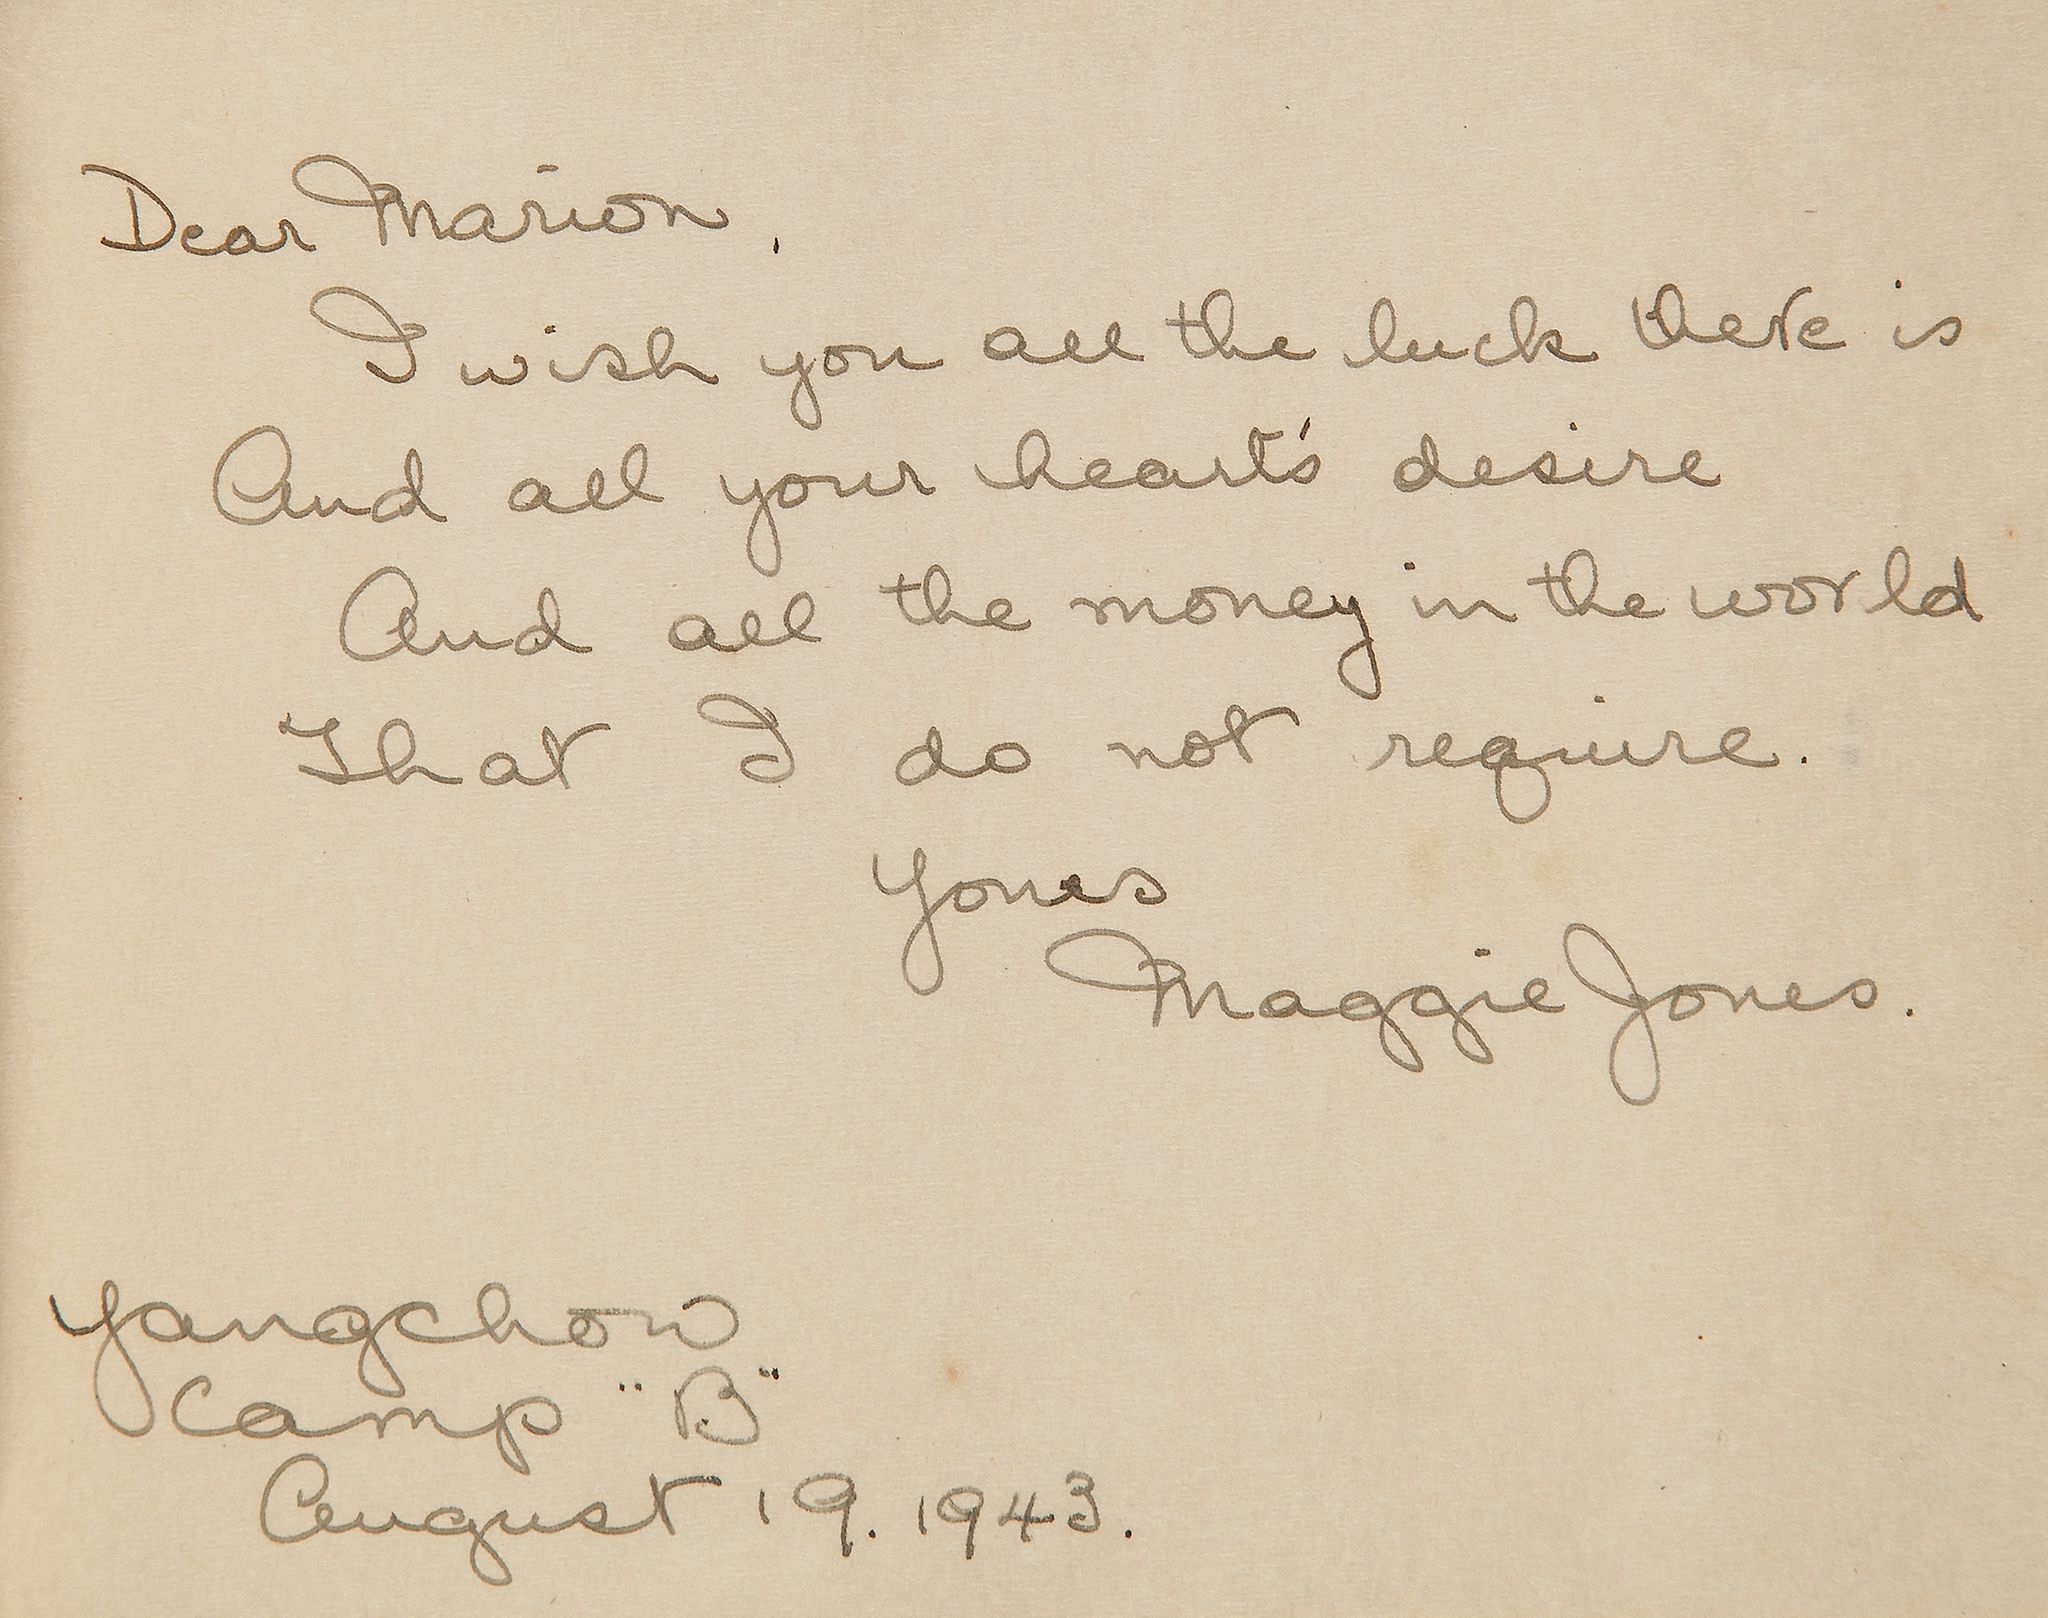 Dear Marion,
I wish you all the luck there is
And all your heart's desire
And all the money in the world
That I do not require.
Yours
Maggie Jones.
Yangchow
Camp "B"
August 19. 1943.